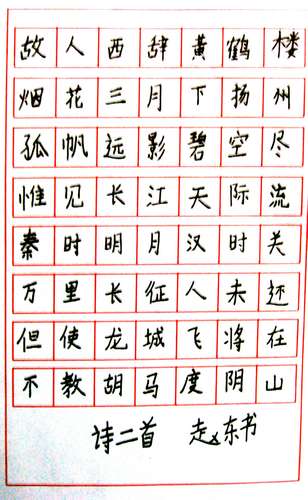 故人西辞黄鹤楼
烟花三月下扬州
孤帆远影碧空尽
惟见长江天际流
秦时明月汉时关
万里长征人未还
但使龙城飞将在
不教胡马度阴山
诗二首 赵东书